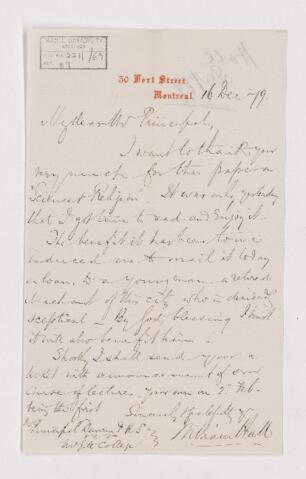 McGILL UNIVERSITY
ARCHIVES
ACC. NO. 2211/69
REF. 49
Hall
30 Fort Street.
Montreal. 16 Dec -79
My dear Mr Principal,
I want to thank you
very much for the paper on
"Science & Religion". It was only yesterday
that I got time to read and enjoy it.
The benefit it has been to me
induced me to mail it today
on loan, to a young man - a retired
Merchant of this city who is decidedly
sceptical - By God's blessing I trust
it will also benefit him -
Shortly I shall send you a
ticket with announcement of our
Course of lectures, yours on 2d Feb.
being the first
Sincerely & gratefully Yr
William Hall
Principal Dawson F.R.S -
McGill College